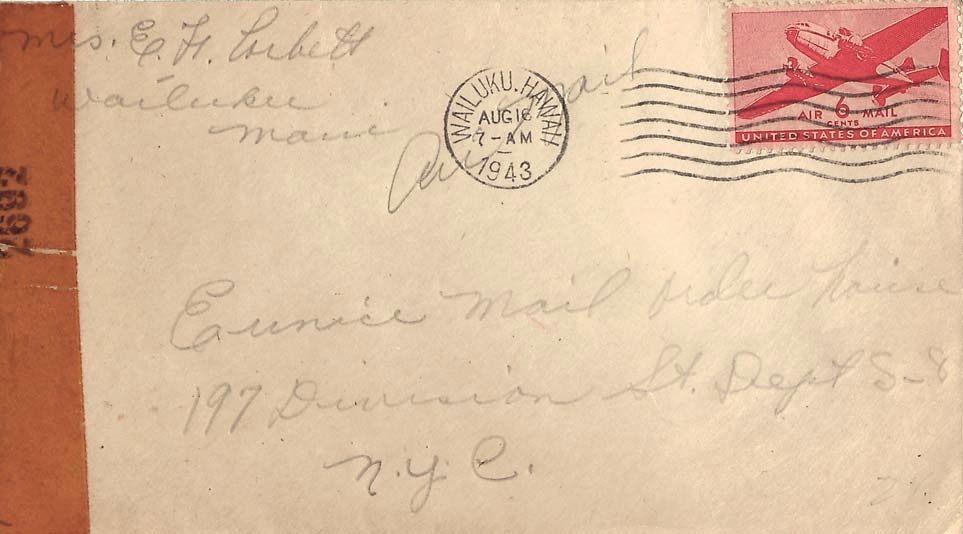 Mrs. E. H. Corbett
Wailuku
Maui
Air Mail
WAILUKU. HAWAII
AUG 16
7-AM
1943
AIR 6 MAIL
CENTS
UNITED STATES OF AMERICA
Eunice Mail Order house
197 Division St. Dept S-8
N.Y.C.